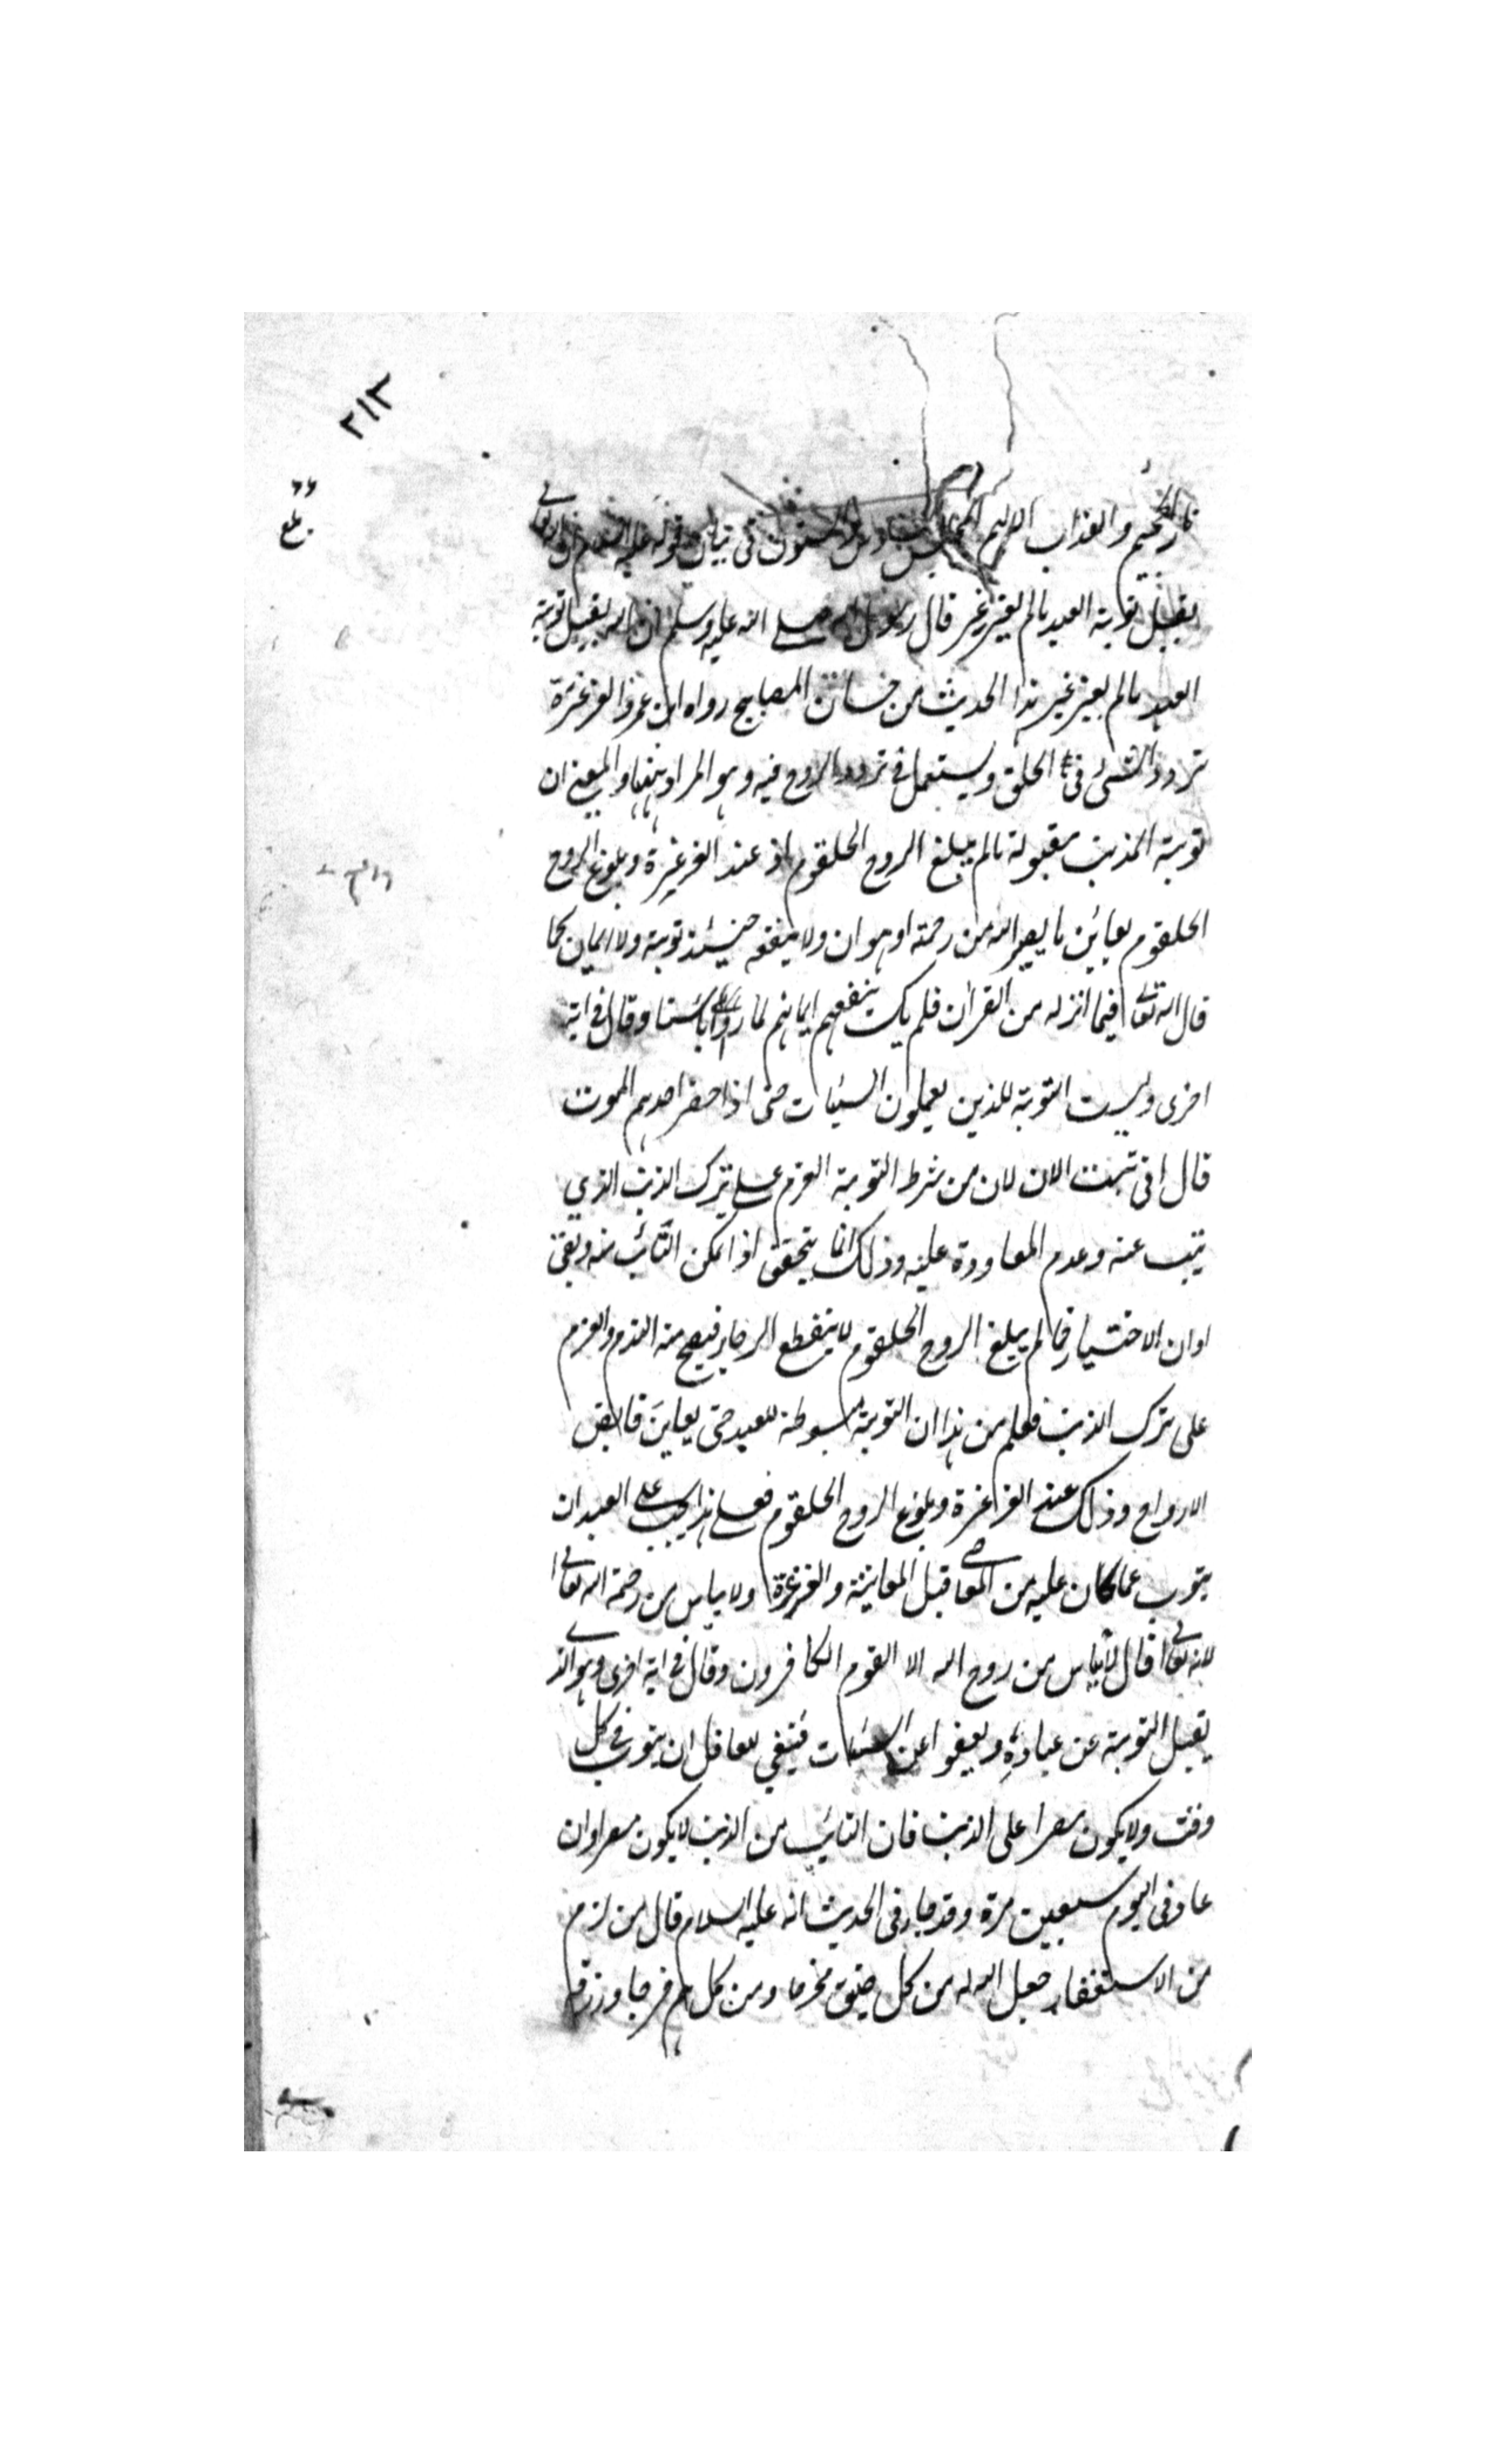 ٢١٣
نار الجحيم والعذاب الاليم المجلس السادس والستون فى بيان قوله عليه السلام ان الله تعالى
يقبل توبة العبد مالم يغرغر قال رسول الله صلى الله عليه وسلم ان الله يقبل توبة
العبد مالم يغرغر هذا الحديث من حسان المصابيح رواه ابن عمر والغرغرة
تردد الشئ فى الحلق ويستعمل فى تردد الروح فيه وهو المراد ههنا والمعنى ان
توبة المذنب مقبولة مالم يبلغ الروح الحلقوم اذ عند الغرغرة وبلوغ الروح
الحلقوم يعاين ما يصير اليه من رحمة او هوان ولا ينفعه حينئذ توبة ولا ايمان كما
قال الله تعالى فيما انزله من القران فلم يك ينفعهم ايمانهم لما رأوا بأسنا وقال فى اية
اخرى وليست التوبة للذين يعملون السيئات حتى اذا حضر احدهم الموت
قال انى تبت الان لان من شرط التوبة العزم على ترك الذنب الذي
تيب عنه وعدم المعاودة عليه وذلك انما يتحقق اذا تمكن التائب منه وبقى
اوان الاختيار فما لم يبلغ الروح الحلقوم لا ينقطع الرجاء فيصح منه الندم والعزم
على ترك الذنب فعلم من هذا ان التوبة مبسوطة للعبد حتى يعاين قابض
الارواح وذلك عند الغرغرة وبلوغ الروح الحلقوم فعلى هذا يجب على العبد ان
يتوب عما كان عليه من المعاصى قبل المعاينة والغرغرة ولا ياس من رحمة الله تعالى
لانه تعالى قال لا يياس من روح الله الا القوم الكافرون وقال فى اية اخرى وهو الذى
يقبل التوبة عن عباده ويعفوا عن السيئات فينبغي للعاقل ان يتوب فى كل
وقت ولا يكون مصرا على الذنب فان التائب من الذنب لا يكون مصرا وان
عاد فى اليوم سبعين مرة وقد جاء فى الحديث انه عليه السلام قال من لزم
من الاستغفار جعل الله له من كل ضيق مخرجا ومن كل هم فرجا ورزقه